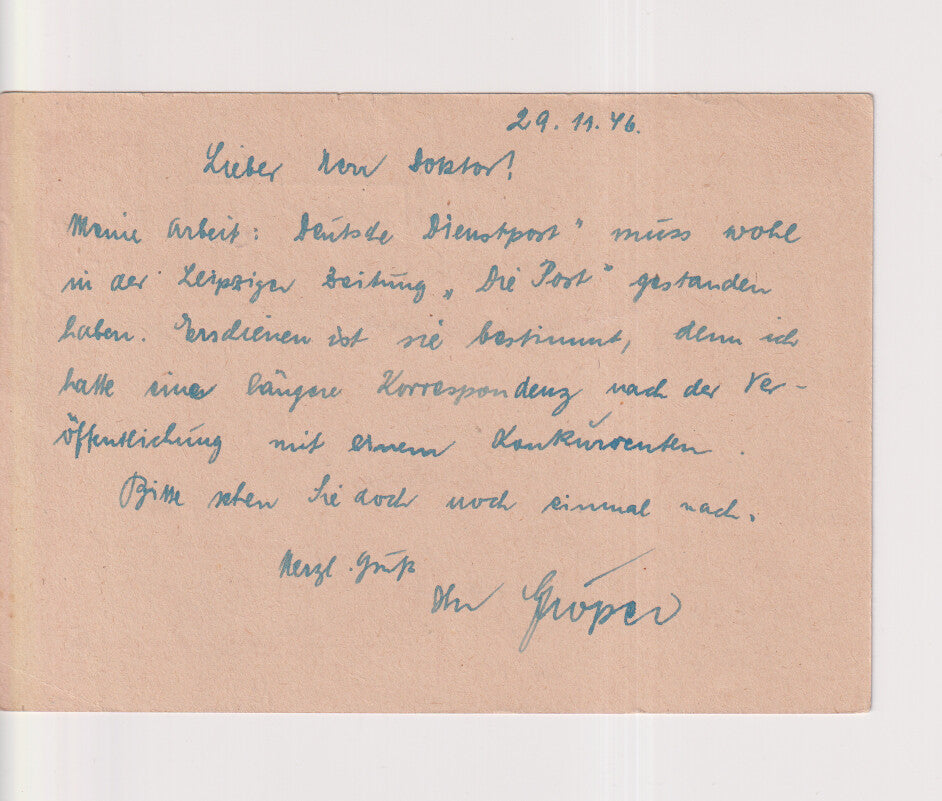 29. 11. 46.
Lieber Herr Doktor!
Meine Arbeit: Deutsche Dienstpost" muss wohl
in der Leipziger Zeitung „Die Post" gestanden
haben. Erschienen ist sie bestimmt, denn ich
hatte eine längere Korrespondenz nach der Ver-
öffentlichung mit einem Konkurrenten.
Bitte sehen Sie doch noch einmal nach.
Herzl. Gruß
Ihr Gröper